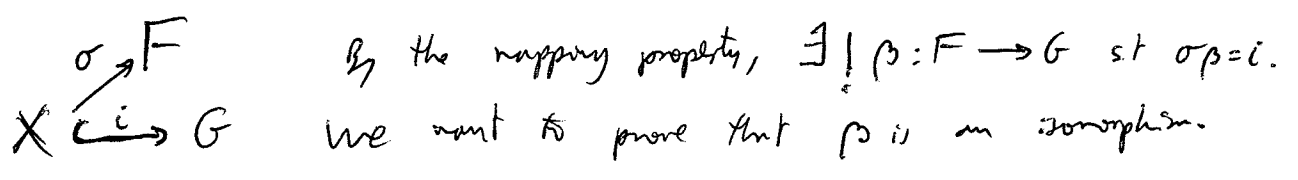 σ F By the mapping property, ∃! β : F → G s.t σβ = i.
X i G We want to prove that β is an isomorphism.